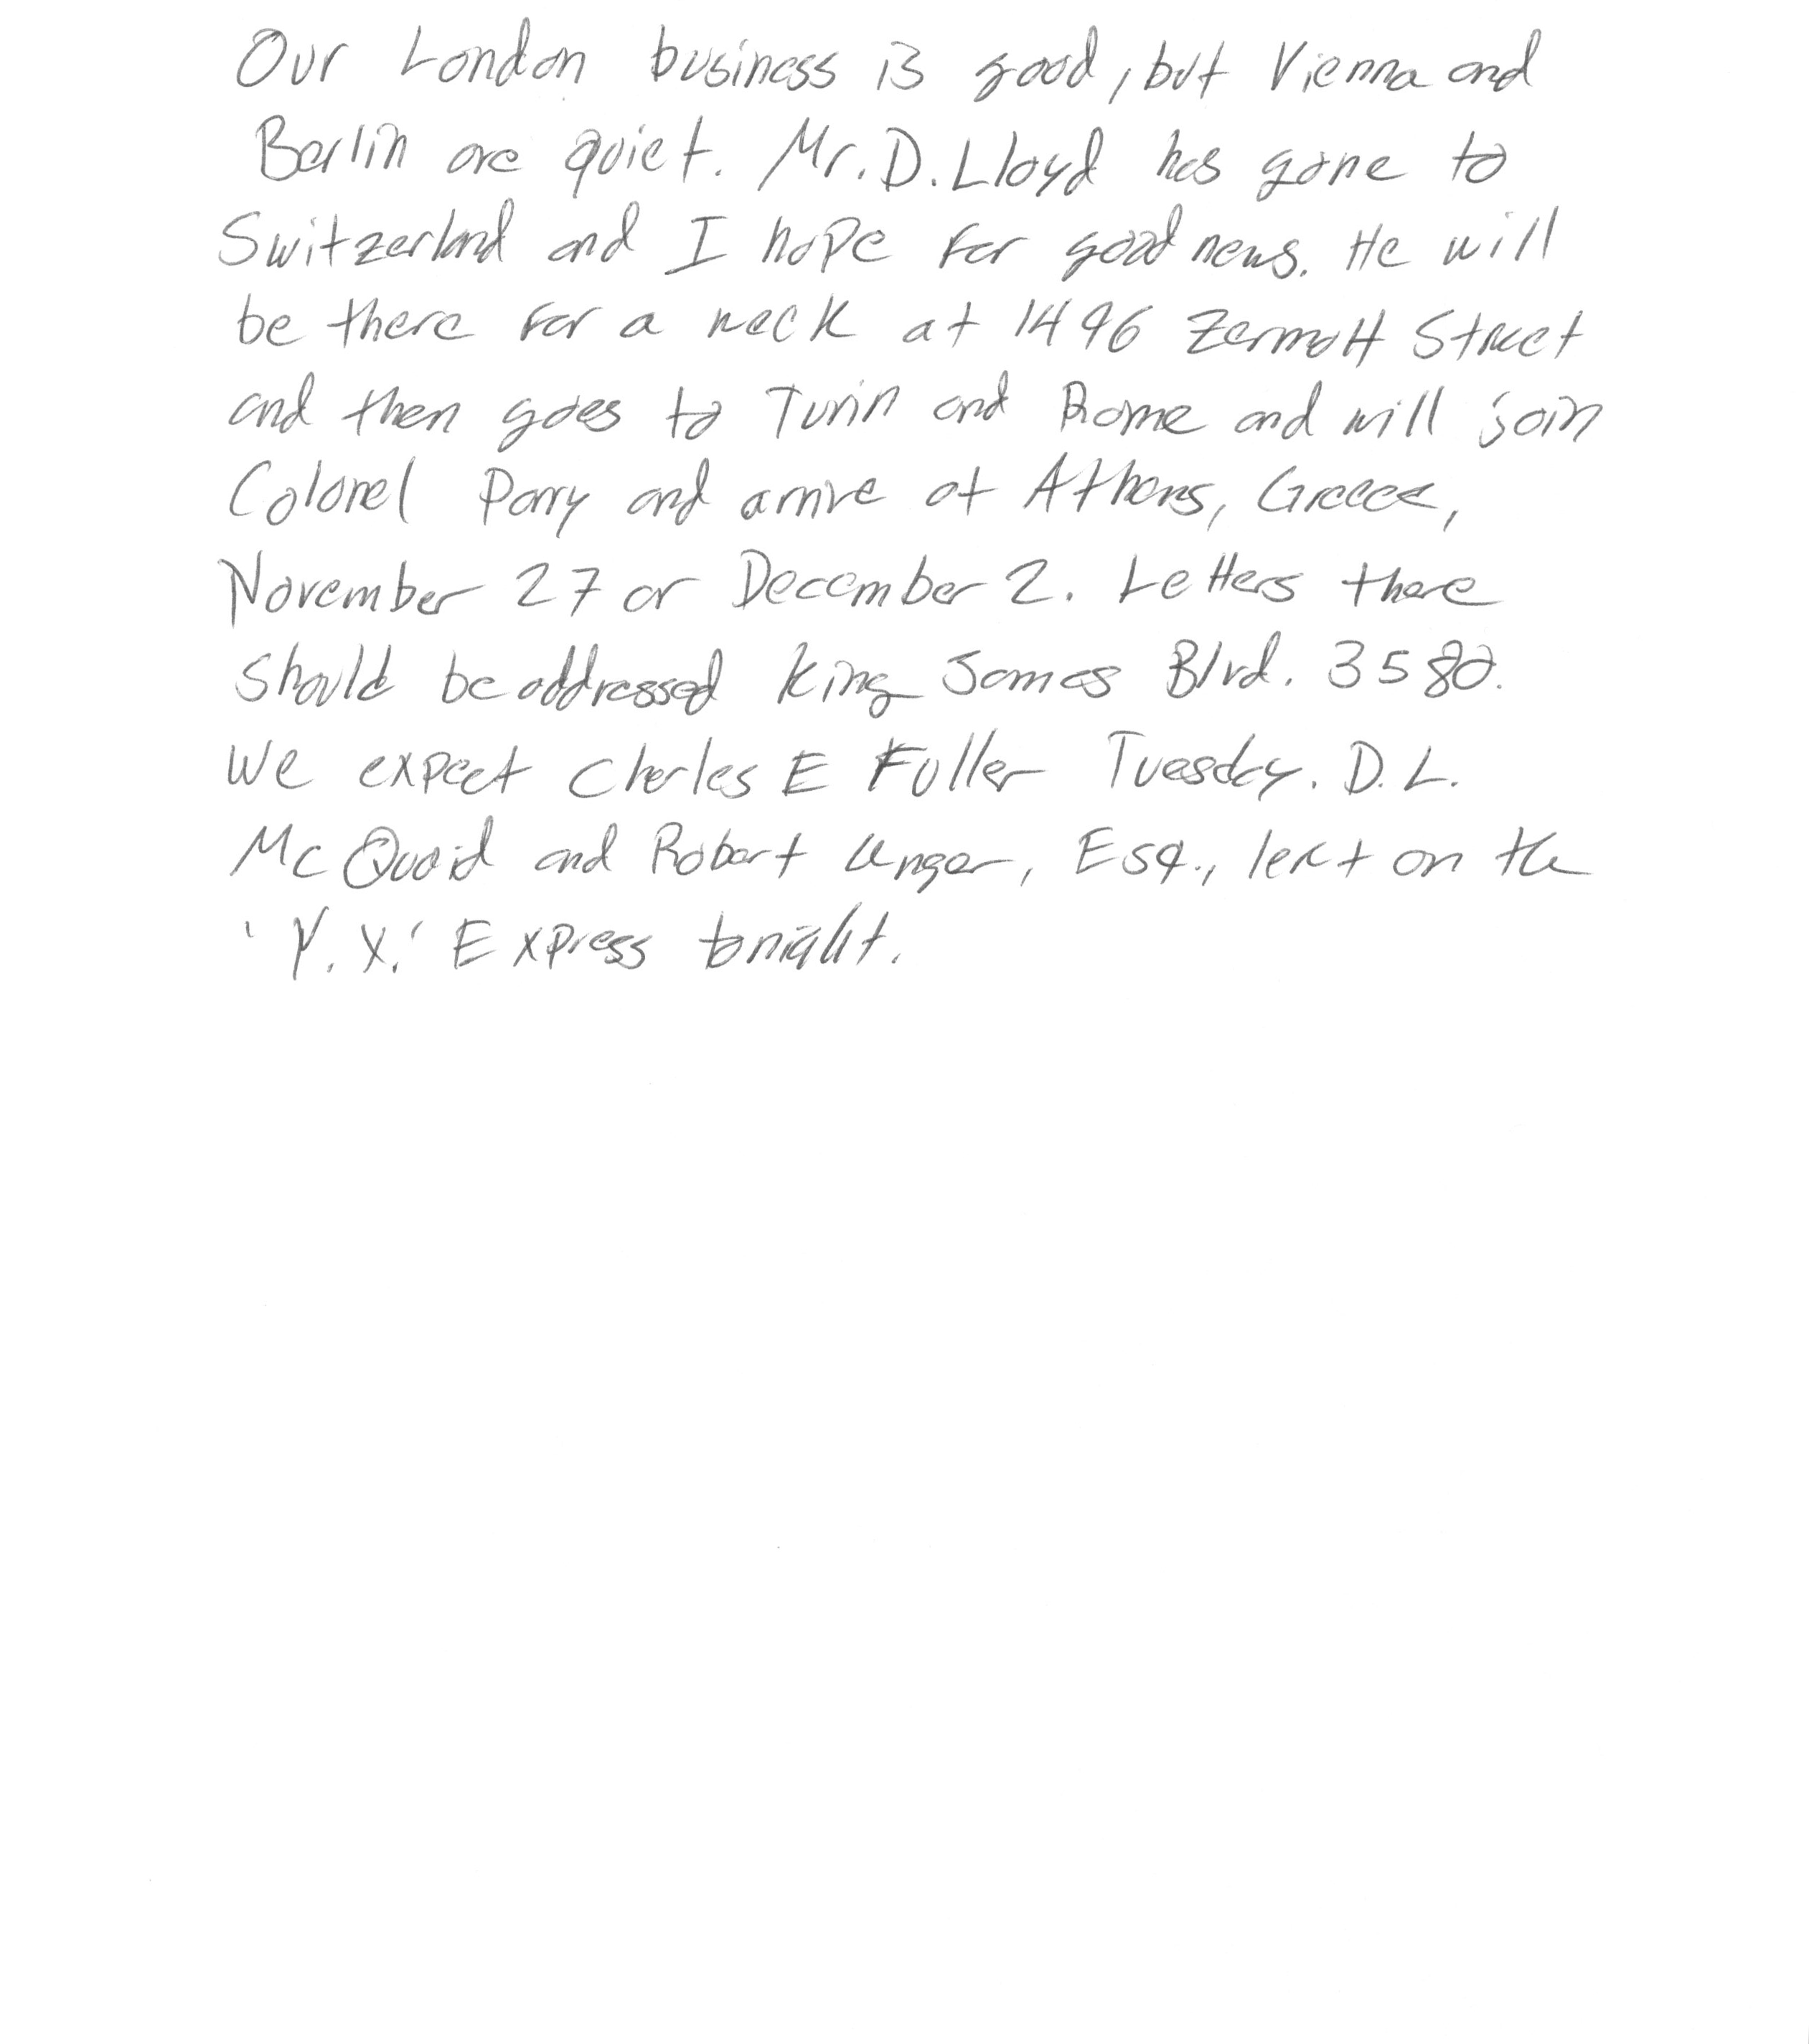 Our London business is good, but Vienna and
Berlin are quiet. Mr. D. Lloyd has gone to
Switzerland and I hope for good news. He will
be there for a week at 1496 Zermott Street
and then goes to Turin and Rome and will join
Colonel Parry and arrive at Athens, Greece,
November 27 or December 2. Letters there
should be addressed King James Blvd. 3580.
We expect Charles E Fuller Tuesday. D.L.
McQuaid and Robert Unger, Esq., left on the
'Y. X.' Express tonight.